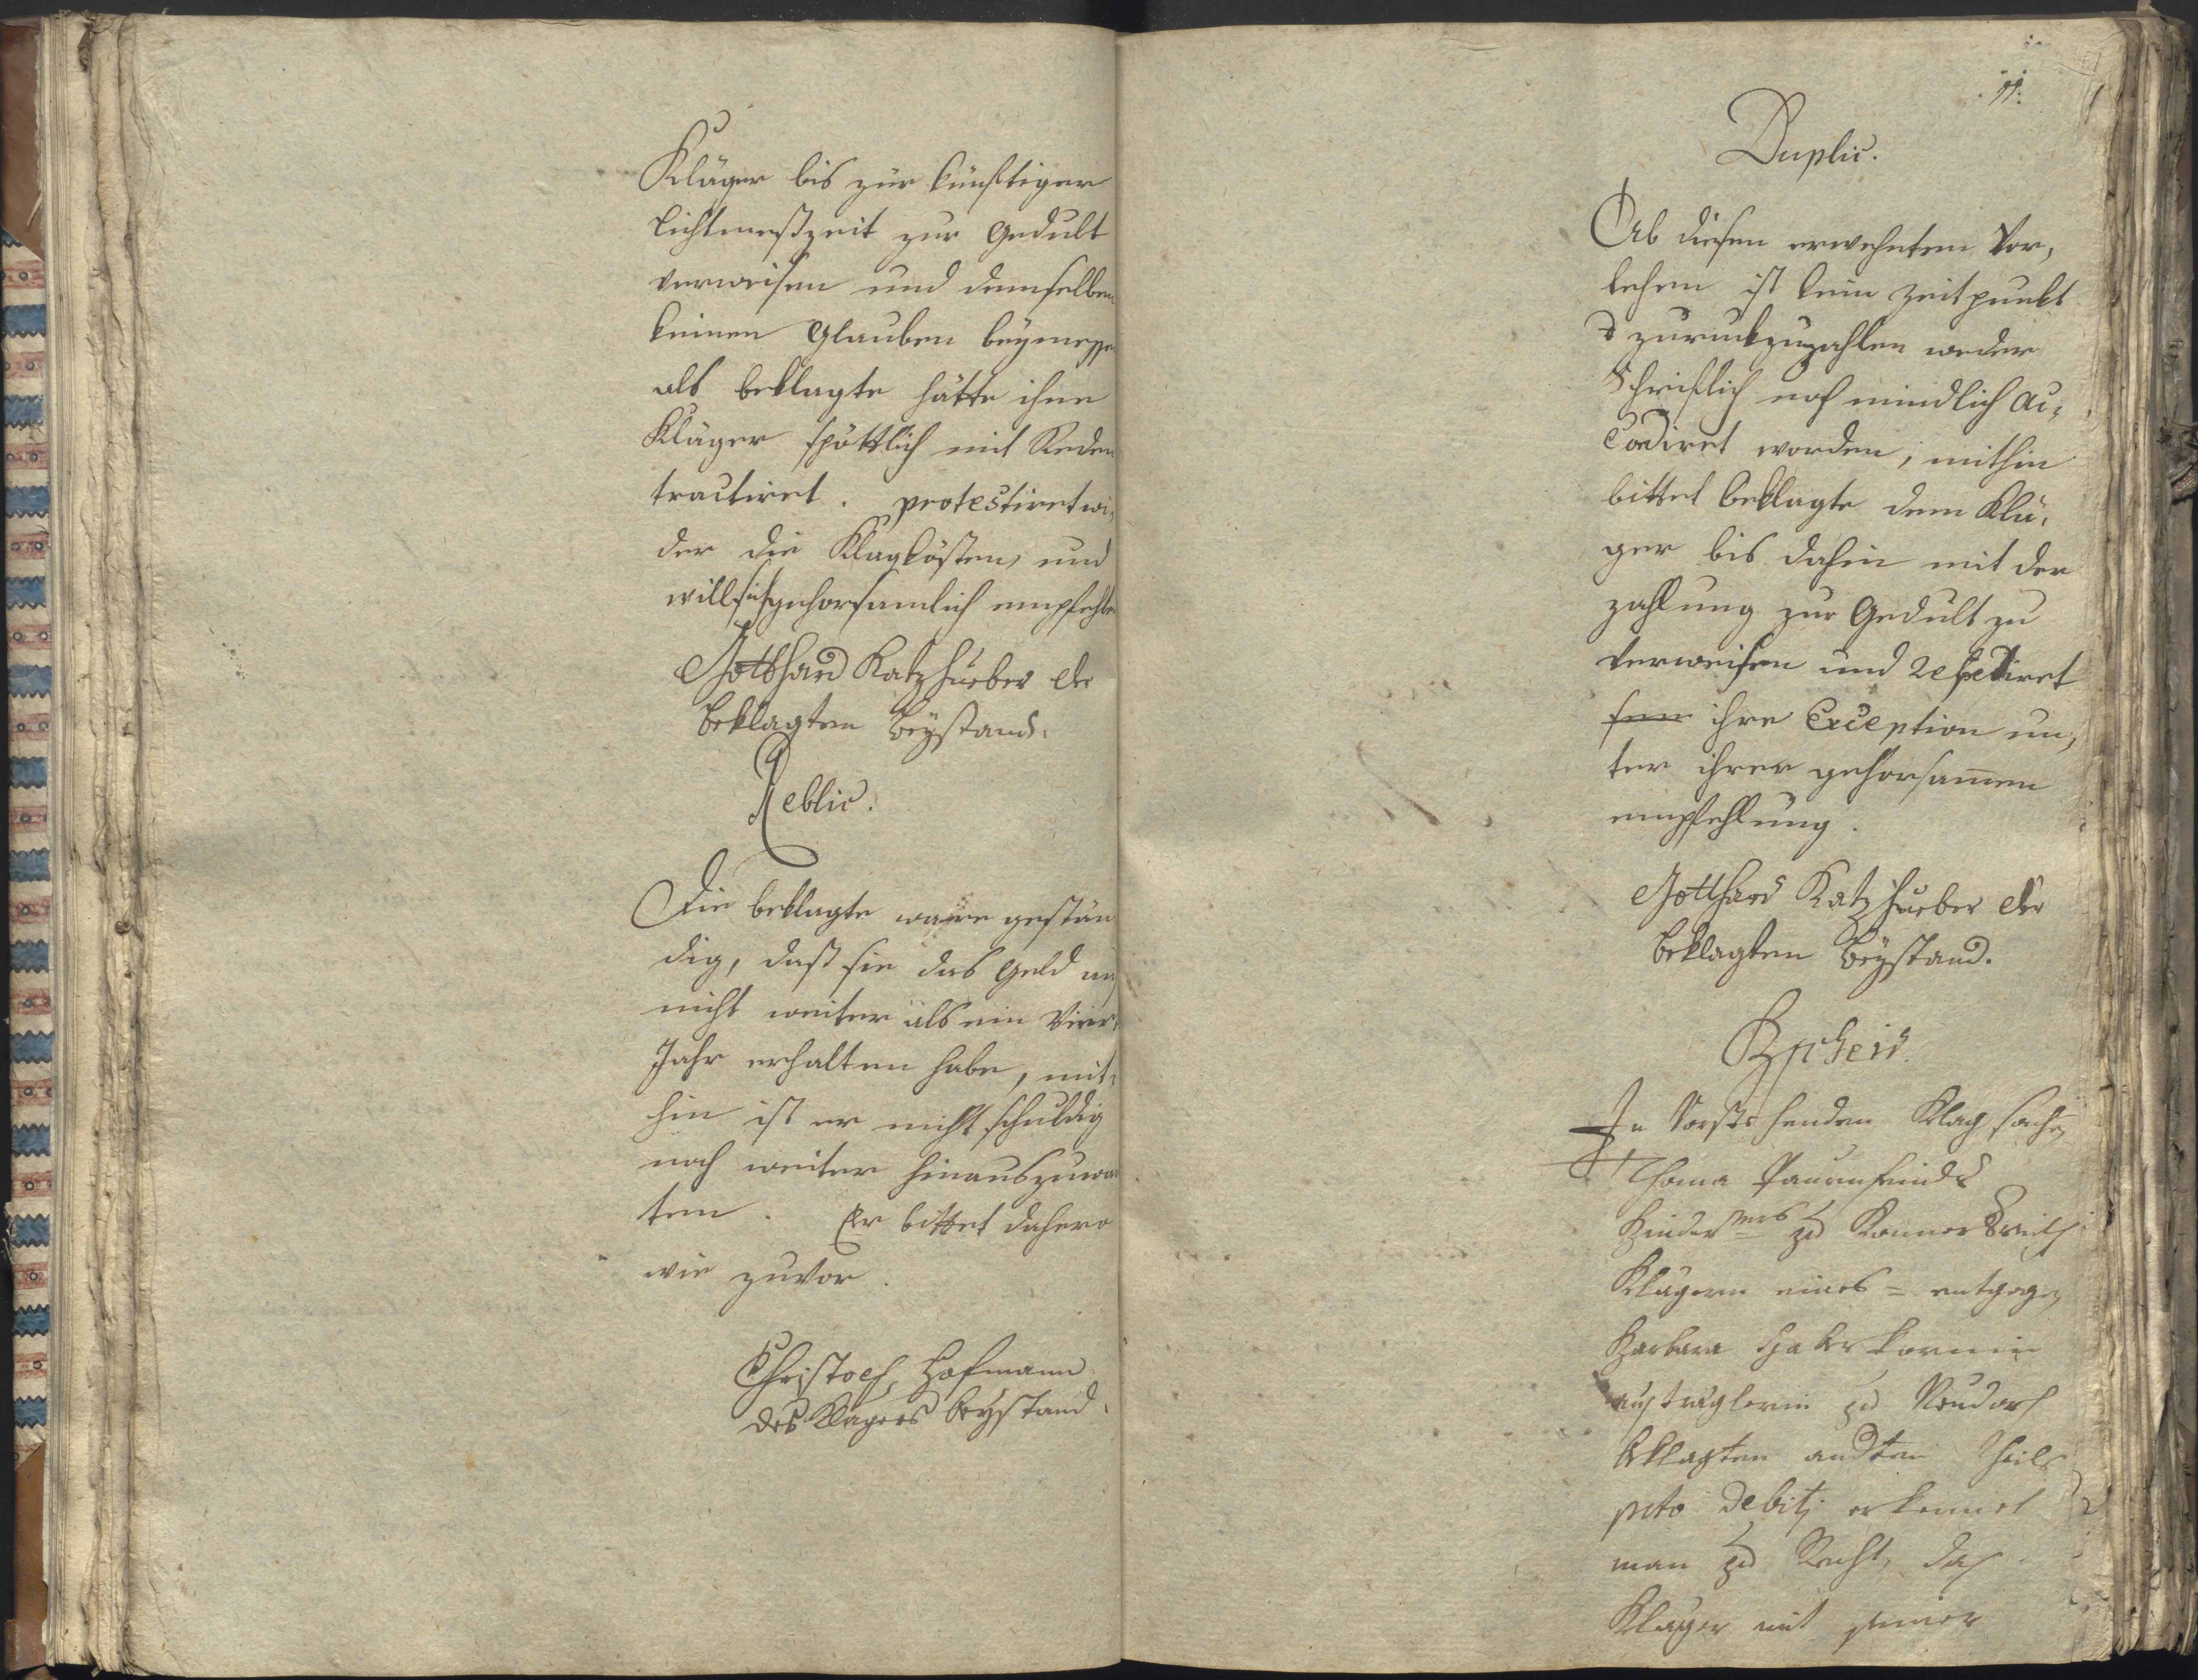 Kläger bis zur künftigen
lichtmeßzeit zur Gedult
verweisen und demselben
keinen Glauben beymessen
als beklagte hätte ihne
Kläger spöttlich mit Reden
tractiret. protestiret wi,
der die Klagkösten, und
will sich gehorsamlich empfehlen
Gotthard Katzhueber der
beklagten Beystand.
Reblic.
Die beklagte ware gestän
dig, daß sie das Geld
nicht weiter als ein Vier
Jahr erhalten habe, mit,
hin ist er nicht schuldig
noch weiter hinauszuwar
ten. Er bittet dahero
wie zuvor.
Christoph Hofmann
des Klägers beystand.
11.
Duplic.
Ob diesen erwehnten Vor,
lehen ist kein zeitpunkt
zuruckzuzahlen weder
Schriftlich noch mündlich ac,
cordiret worden; mithin
bittet beklagte dem Klä,
ger bis dahin mit der
zahlung zur Gedult zu
verweisen und repetiret
ihre Exception un,
ter ihrer gehorsamen
empfehlung.
Gotthard Katzhueber der
beklagten Beystand.
Bscheid.
In Vorstehenden Klag sachen
Thoma Paurnfeinds
zu
Klägern eines = entgegen
Barbara Haberkornin
austräglerin zu Neudorf
beklagten andten theils
pcto debiti erkennet
man zu Recht, daß
Kläger mit seiner